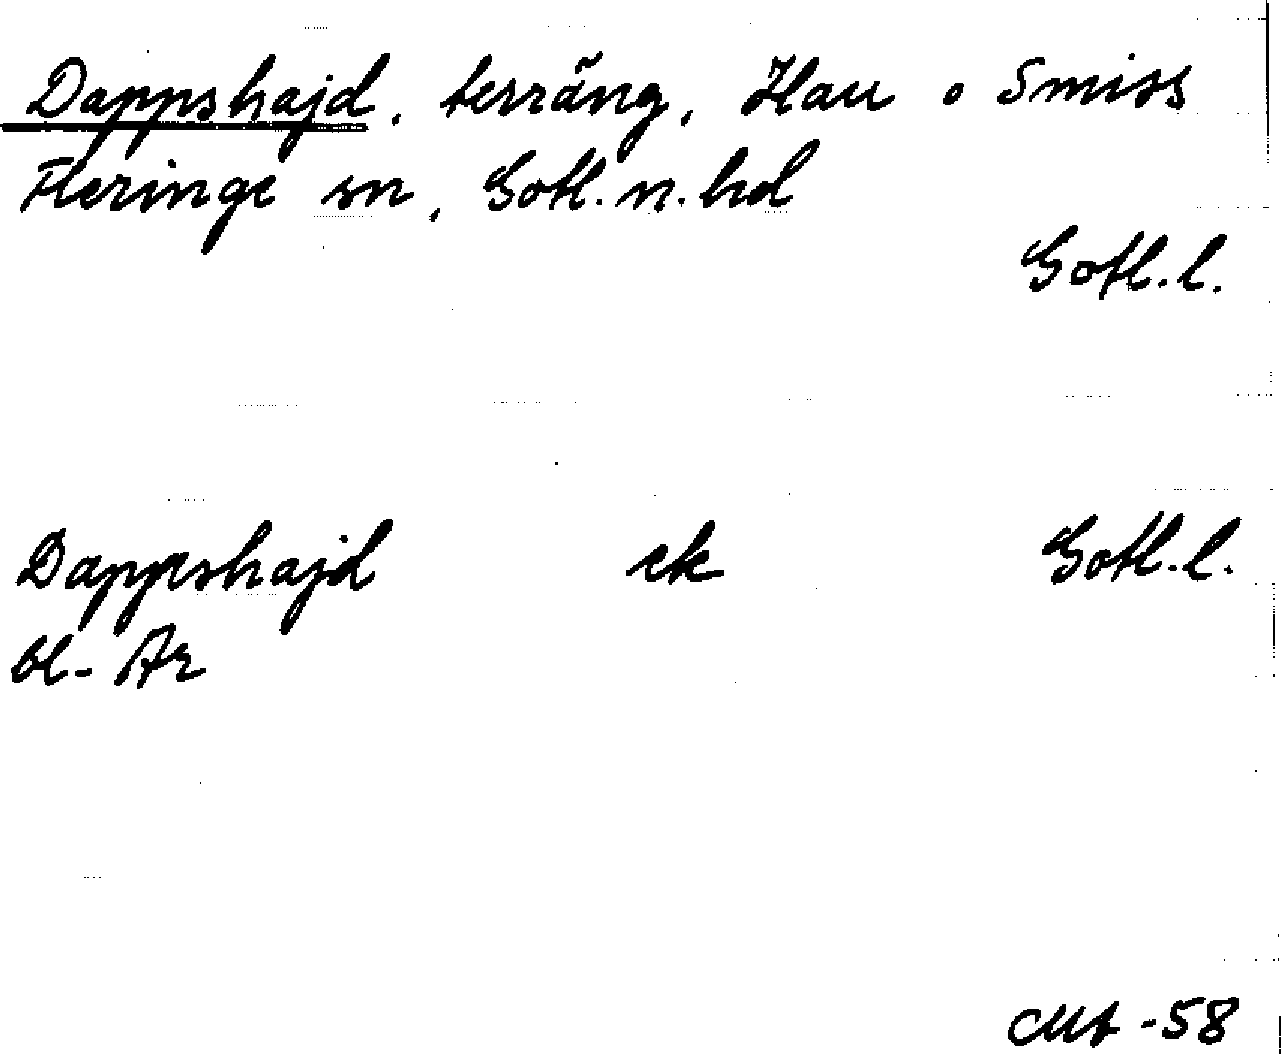 Dappshajd, terräng, Hau o Smiss
Fleringe sn, Gotl. n. hd
Gotl. l.
Dappshajd ek Gotl. l.
bl- Ar
-58